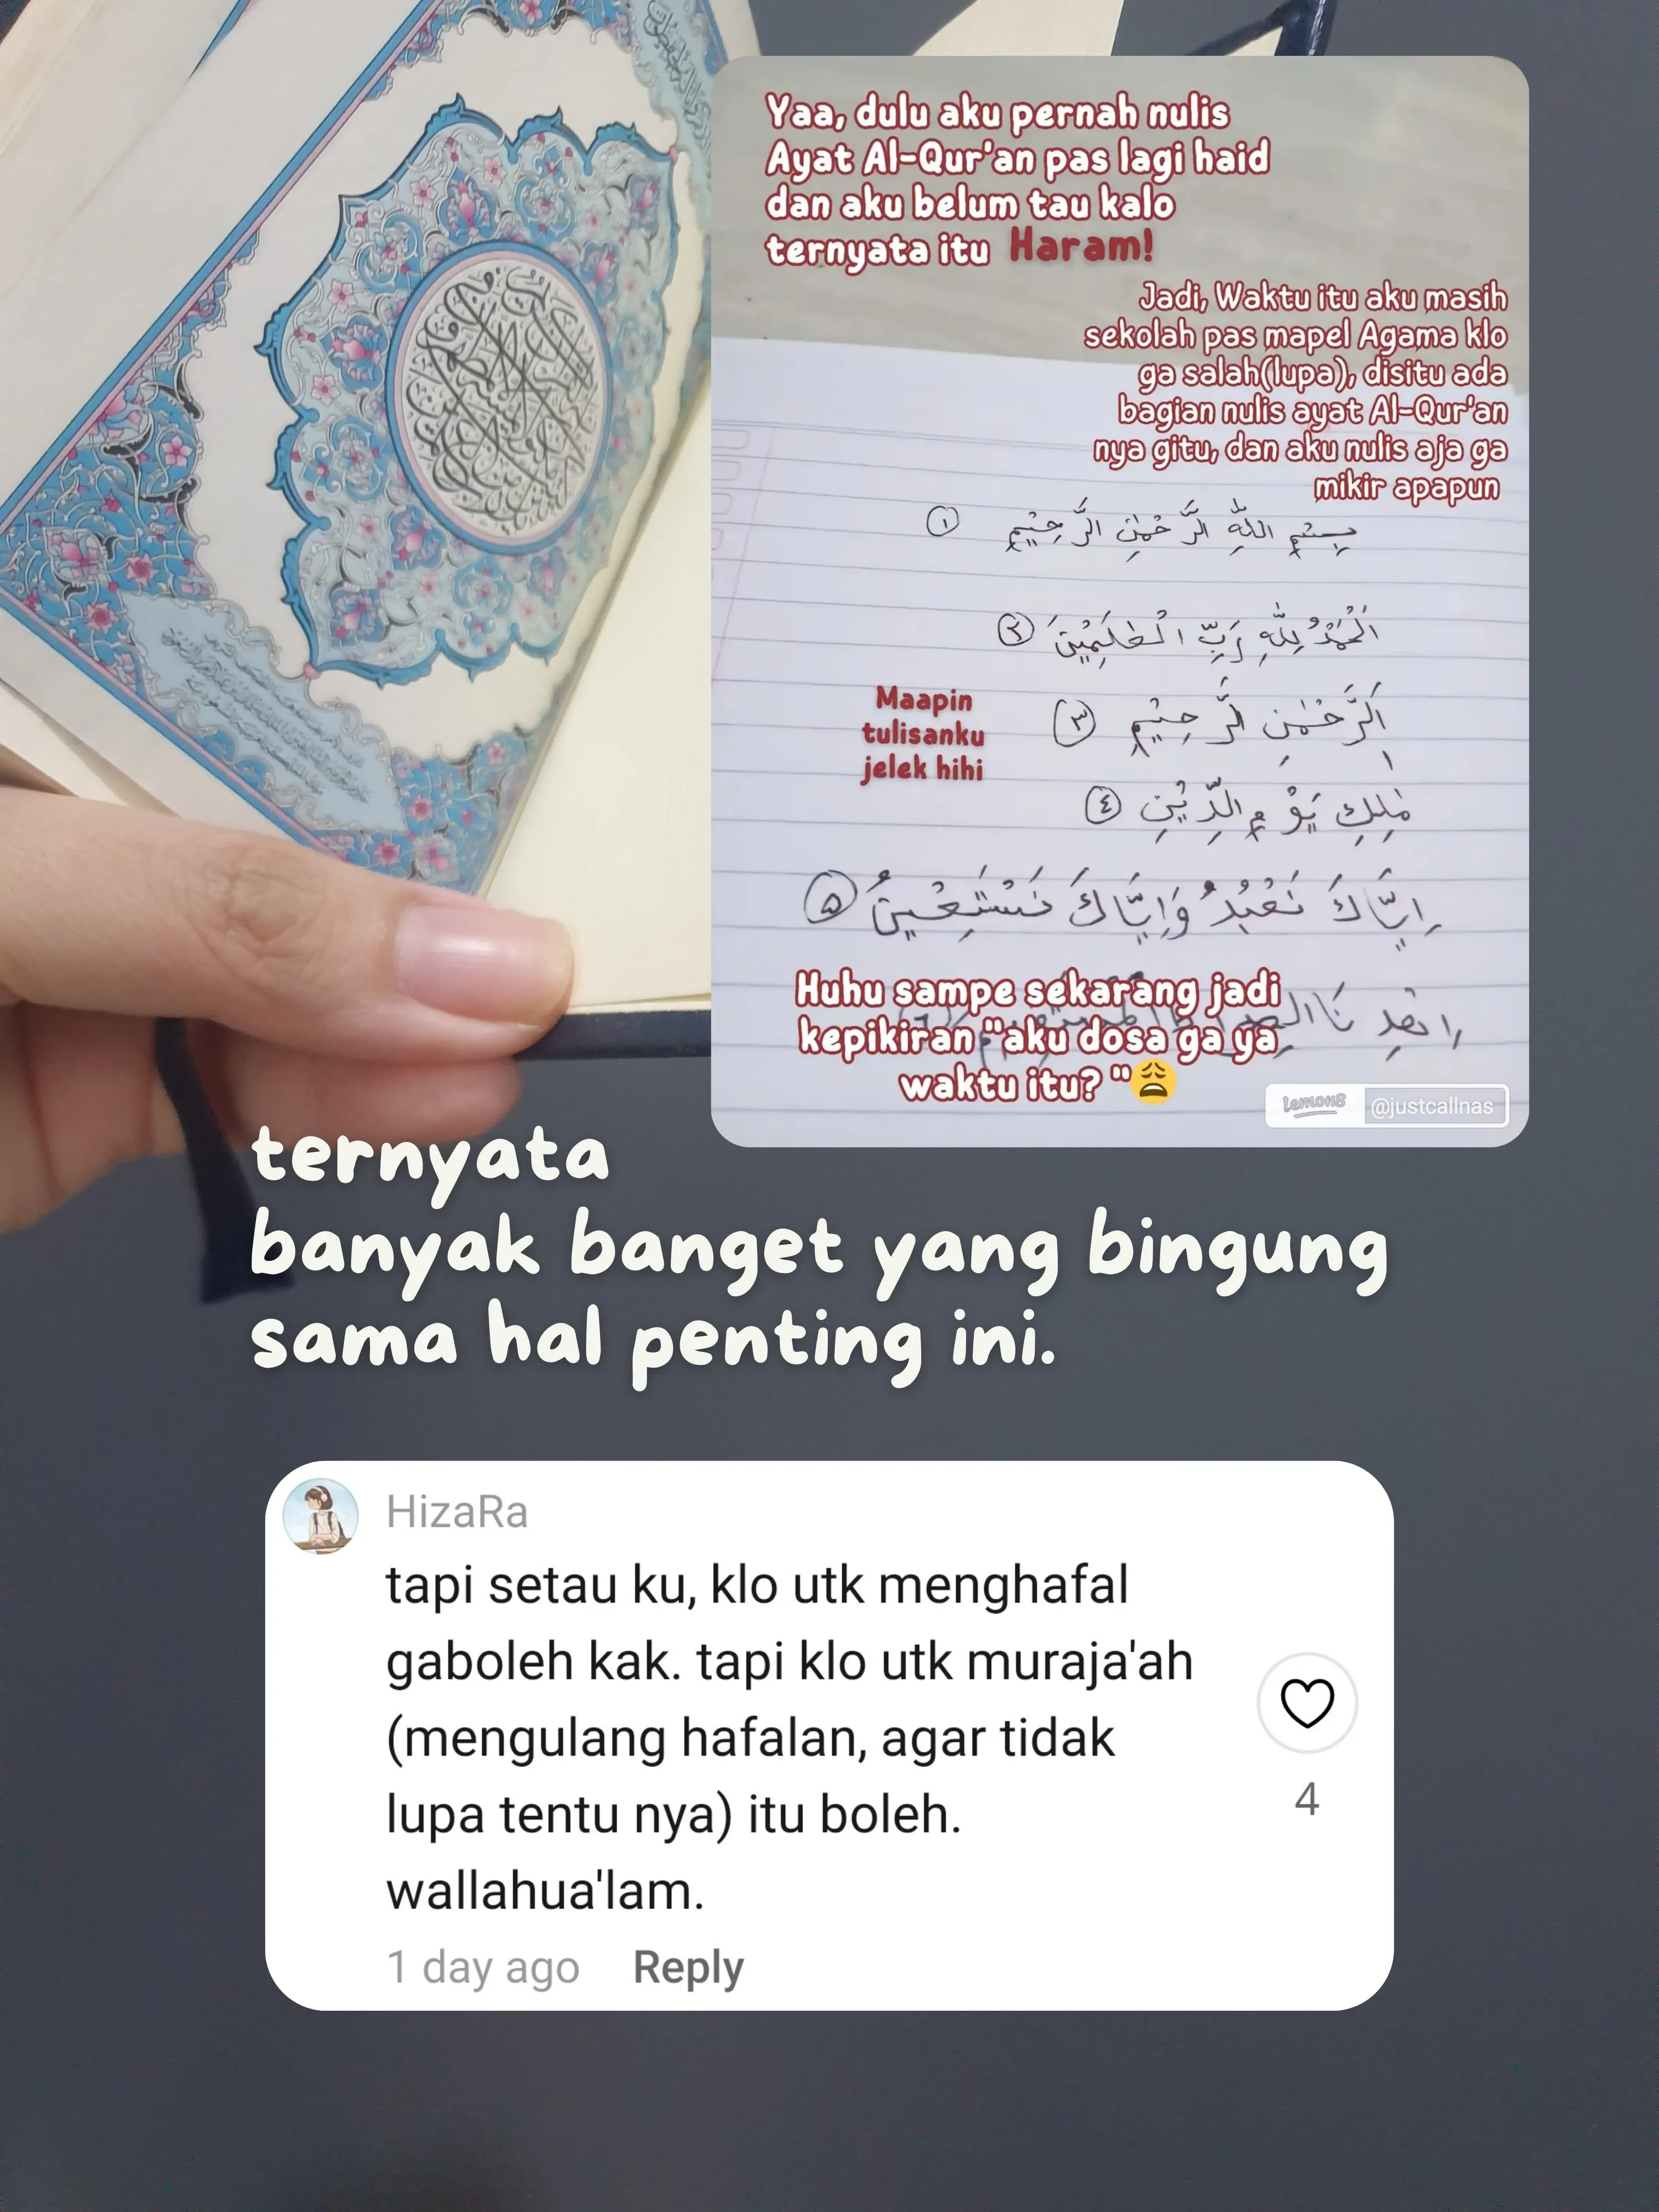 Yaa, dulu aku pernah nulis
Ayat Al-Qur'an pas lagi haid
dan aku belum tau kalo
ternyata itu Haram!
Jadi, Waktu itu aku masih
sekolah pas mapel Agama klo
ga salah(lupa), disitu ada
bagian nulis ayat Al-Qur'an
nya gitu, dan aku nulis aja ga
mikir apapun
بِسْمِ اللّٰهِ الرَّحْمٰنِ الرَّحِيْمِ ١
اَلْحَمْدُ لِلّٰهِ رَبِّ الْعٰلَمِيْنَ ٢
اَلرَّحْمٰنِ الرَّحِيْمِ ٣
Maapin
tulisanku
jelek hihi
مٰلِكِ يَوْمِ الدِّيْنِ ٤
اِيَّاكَ نَعْبُدُ وَاِيَّاكَ نَسْتَعِيْنُ ۵
اِهْدِنَا
Huhu sampe sekarang jadi
kepikiran "aku dosa ga ya
waktu itu? "😩
lemon8 @justcallnas
ternyata
banyak banget yang bingung
sama hal penting ini.
HizaRa
tapi setau ku, klo utk menghafal
gaboleh kak. tapi klo utk muraja'ah
(mengulang hafalan, agar tidak
lupa tentu nya) itu boleh.
wallahua'lam.
4
1 day ago Reply